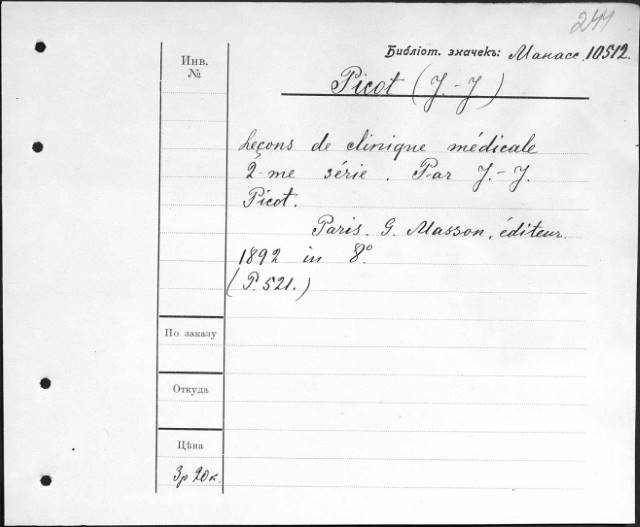 244
Библіот. значекъ: Манасс. 10512.
Инв.
№
Picot (J.-J.)
Leçons de clinique médicale
2-me série. Par J.-J.
Picot.
Paris. G. Masson, éditeur.
1892 in 8º.
(P. 521.)
По заказу
Откуда
Цѣна
3 р 20 к.